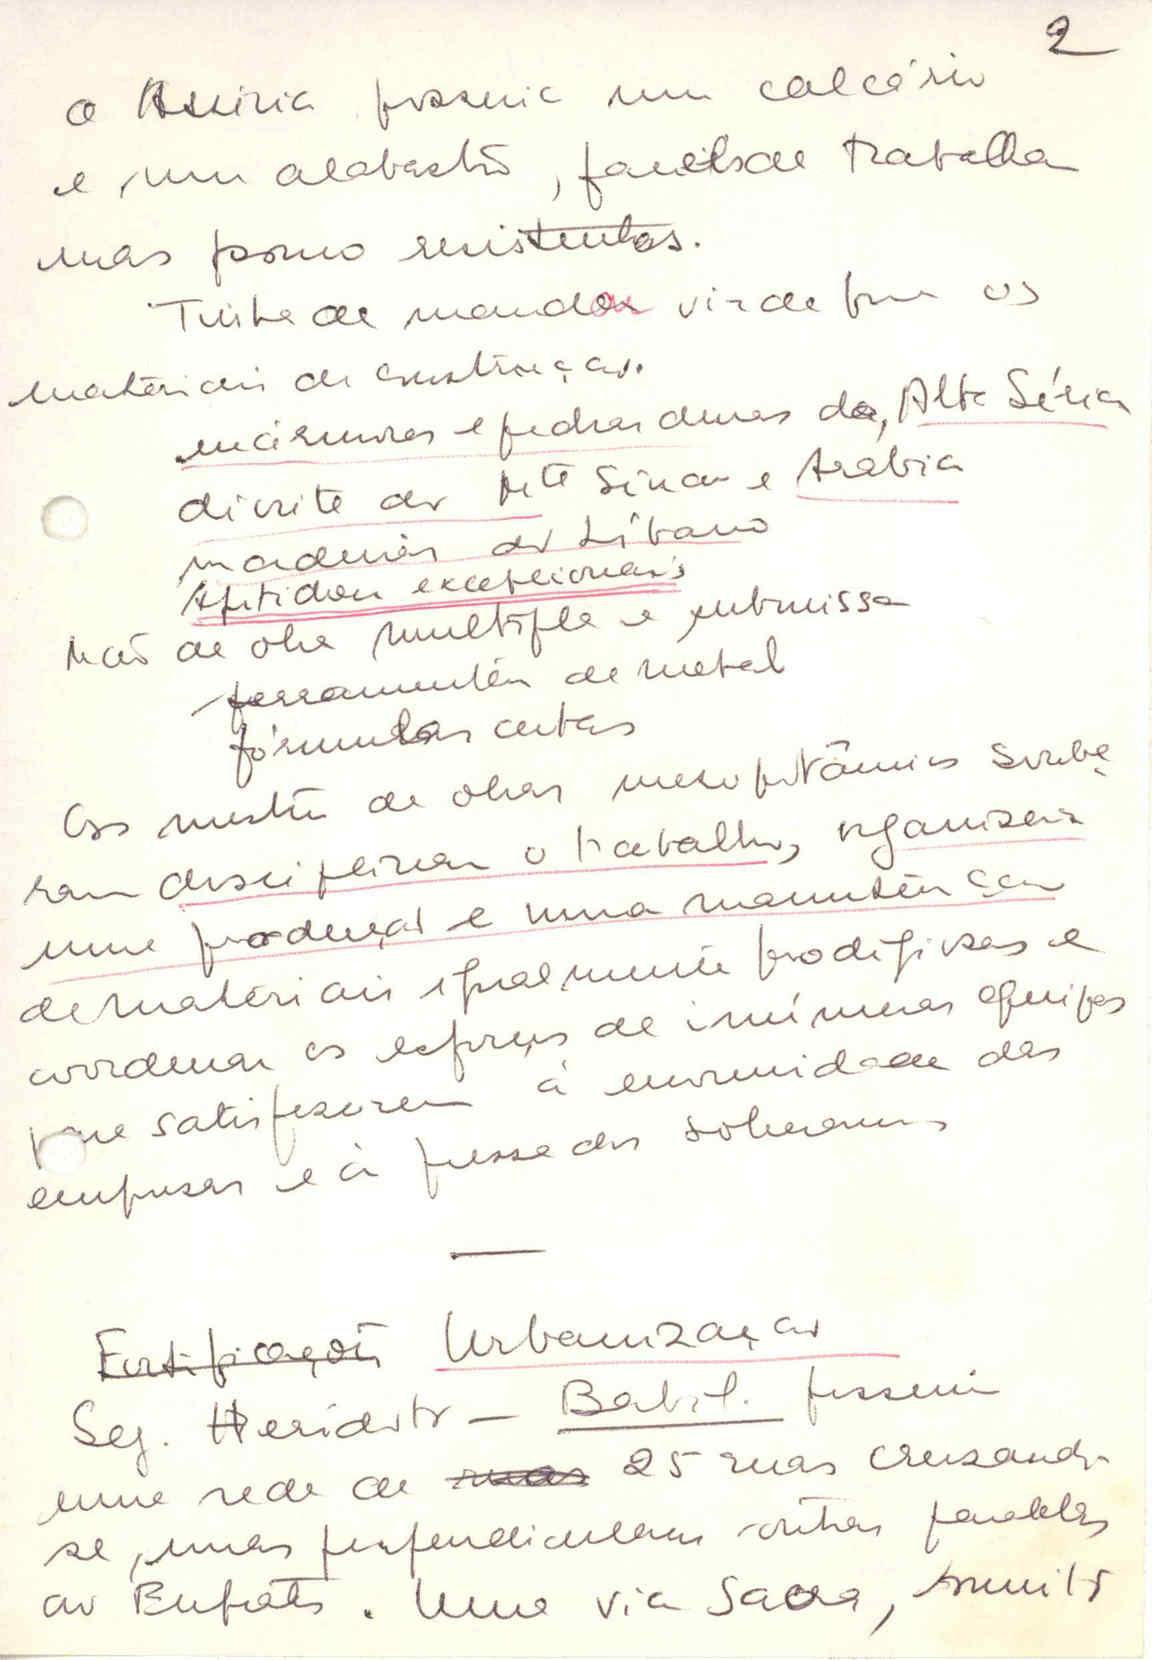 2
a Assiria possuia um calcário
e um alabastro, faceis de trabalhar
mas pouco resistentes.
Tinha de mandar vir de fora os
materiais de construção.
mármores e pedras duras da, Alta Síria
diorite do Mte Sinai e Arabia
madeiras do Líbano
Aptidões excepcionais
Mão de obra multipla e submissa
ferramentas de metal
fórmulas certas
Os mestres de obras mesopotâmicos soube
ram disciplinar o trabalho, organizar
uma produção e uma manutenção
de materiais igualmente prodigiosas e
coordenar os esforços de inúmeras equipas
para satisfazerem à enormidade das
empresas e à pressa dos soberanos
—
Fortificações Urbanização
Seg. Heródoto — Babil. possuia
uma rede de ruas 25 ruas cruzando-
se, umas perpendiculares outras paralelas
ao Eufrates. Uma via Sacra, muito